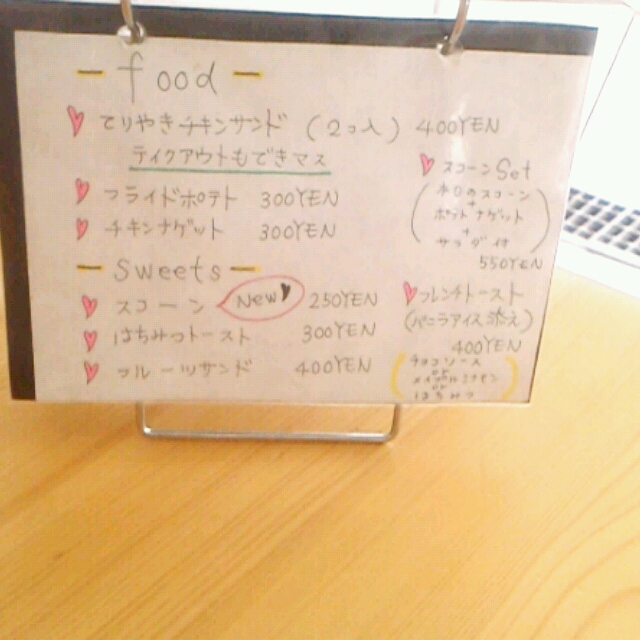 food
てりやきチキンサンド (2コ入) 400YEN
テイクアウトもできマス
フライドポテト 300YEN
チキンナゲット 300YEN
スコーンSet
のスコーン
+
ポテト ナゲット
+
サラダ付
550YEN
Sweets
スコーン New 250YEN
はちみつトースト 300YEN
フルーツサンド 400YEN
フレンチトースト
(バニラアイス添え)
400YEN
チョコソース
はちみつ